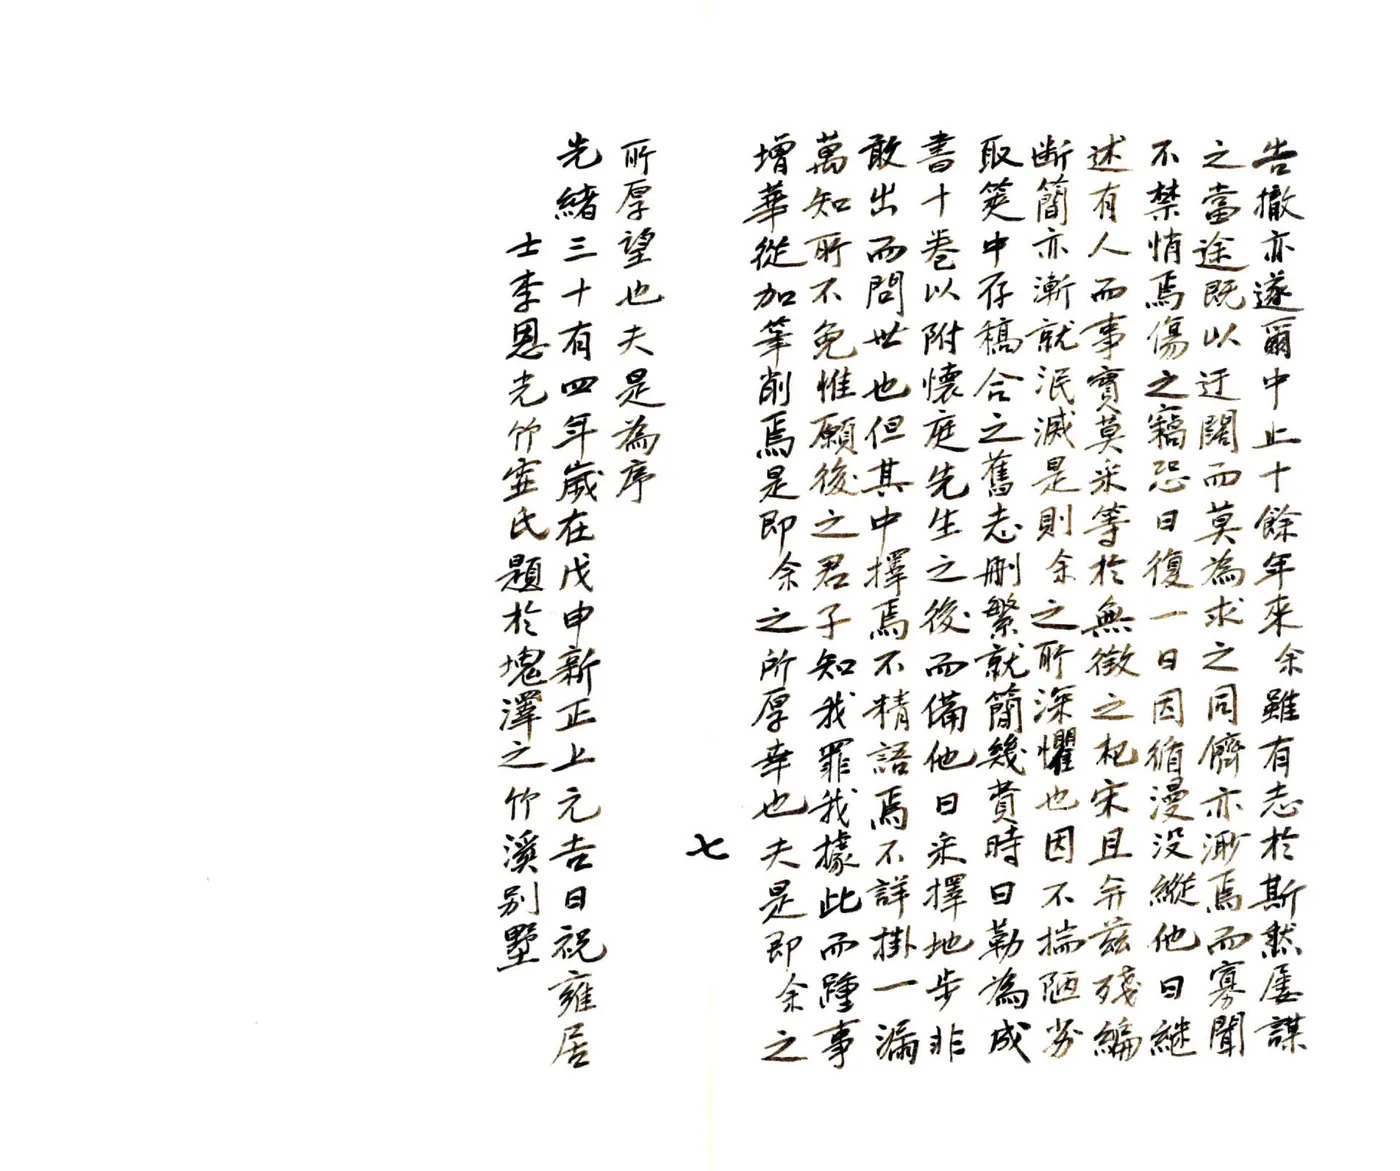 告撤亦遂爾中止十餘年來余雖有志於斯然屡謀
之當途既以迂闊而莫為求之同儕亦渺焉而寡聞
不禁悄焉傷之竊恐日復一日因循漫没縱他日繼
述有人而事實莫采等於無徵之杞宋且弁兹殘編
断簡亦漸就泯滅是則余之所深懼也因不揣陋劣
取篋中存稿合之舊志刪繁就簡幾費時日勒為成
書十巻以附懷庭先生之後而備他日采擇地步非
敢出而問世也但其中擇焉不精語焉不詳掛一漏
萬知所不免惟願後之君子知我罪我據此而踵事
增華從加筆削焉是即余之所厚幸也夫是即余之
七
所厚望也夫是為序
光緒三十有四年歲在戊申新正上元吉日祝雍居
士李恩光竹虚氏題於塊澤之竹溪別墅